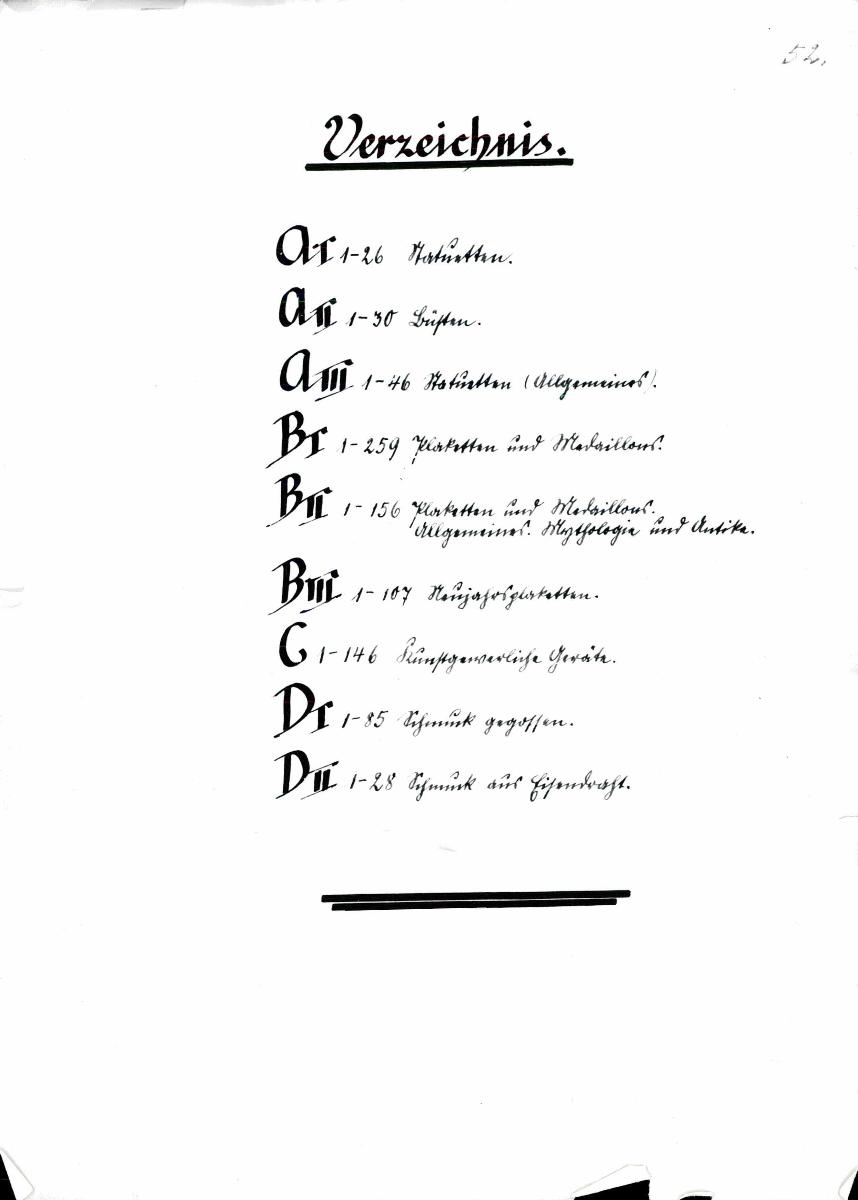 52.
Verzeichnis.
A I 1-26 Statuetten.
A II 1-30 Büsten.
A III 1-46 Statuetten (Allgemeines).
B I 1-259 Plaketten und Medaillons.
B II 1-156 Plaketten und Medaillons.
Allgemeines. Mythologie und Antike.
B III 1-107 Neujahrsplaketten.
C 1-146 Kunstgewerliche Geräte.
D I 1-85 Schmuck gegossen.
D II 1-28 Schmuck aus Eisendraht.